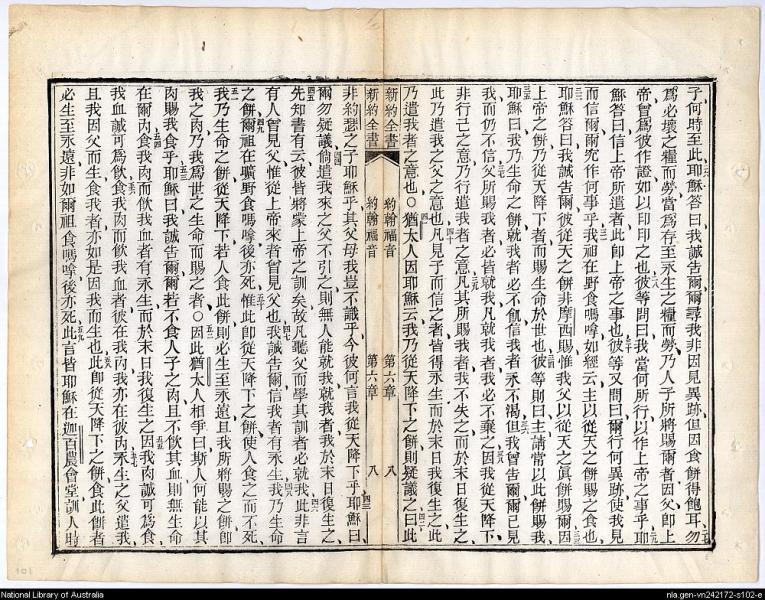 子何時至此耶穌答曰我誠告爾爾尋我非因見異跡但因食餅得飽耳勿
爲必壞之糧而勞當爲存至永生之糧而勞乃人子所將賜爾者因父卽上
帝曾爲彼作證如以印印之也彼等問曰我當何所行以作上帝之事乎耶
穌答曰信上帝所遣者此卽上帝之事也彼等又問曰爾行何異跡使我見
而信爾爾究作何事乎我祖在野食嗎嗱如經云主以從天之餅賜之食也
耶穌答曰我誠告爾彼從天之餅非摩西賜惟我父以從天之眞餅賜爾因
上帝之餅乃從天降下者而賜生命於世也彼等則曰主請常以此餅賜我
耶穌曰我乃生命之餅就我者必不飢信我者永不渴但我曾告爾爾已見
我而仍不信父所賜我者必皆就我凡就我者必不棄之因我從天降下
非行己之意乃行遣我者之意凡其所賜我者我不失之而於末日復生之
此乃遣我之父之意也凡見子而信之者皆得永生而於末日我復生之此
乃遣我者之意也○猶太人因耶穌云我乃從天降下之餅則疑議之曰此
新約全書 約翰福音 第六章 八
新約全書 約翰福音 第六章 八
非約瑟之子耶穌乎其父母我豈不識乎今彼何言我從天降下乎耶穌曰
爾勿疑議倘遣我來之父不引之則無人能就我就我者我於末日復生之
先知書有云彼皆將蒙上帝之訓矣故凡聽父而學其訓者必就我此非言
有人曾見父惟從上帝來者曾見父也我誠告爾信我者有永生我乃生命
之餅爾祖在曠野食嗎嗱後亦死惟此卽從天降下之餅使人食之而不死
我乃生命之餅從天降下若人食此餅則必生至永遠且我所將賜之餅卽
我之肉乃我爲世之生命而賜之者○因此猶太人相爭曰斯人何能以其
肉賜我食乎耶穌曰我誠告爾爾若不食人子之肉且不飲其血則無生命
在爾內食我肉而飲我血者有永生而於末日我復生之因我肉誠可爲食
我血誠可爲飲食我肉而飲我血者彼在我內我亦在彼內永生之父遣我
且我因父而生食我者亦如是因我而生也此卽從天降下之餅食此餅者
必生至永遠非如爾祖食嗎嗱後亦死此言皆耶穌在迦百農會堂訓人時
National Library of Australia
nla.gen-vn242172-s102-e